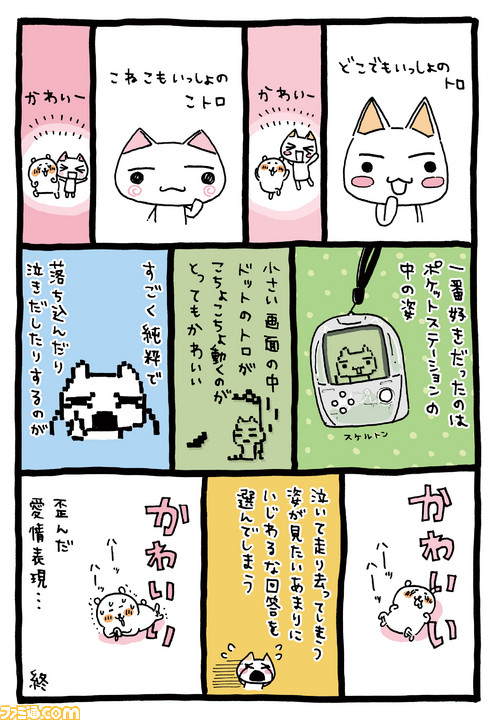 どこでもいっしょの
トロ
かわいー
こねこもいっしょの
こトロ
かわいー
一番好きだったのは
ポケットステーションの
中の姿
スケルトン
小さい画面の中
ドットのトロが
こちょこちょ動くのが
とってもかわいい
すごく純粋で
落ち込んだり
泣きだしたりするのが
かわいい
ハーッ
ハーッ
泣いて走り去ってしまう
姿が見たいあまりに
いじわるな回答を
選んでしまう
かわいい
ハーッ
ハーッ
歪んだ
愛情表現…
終
ファミ通.com